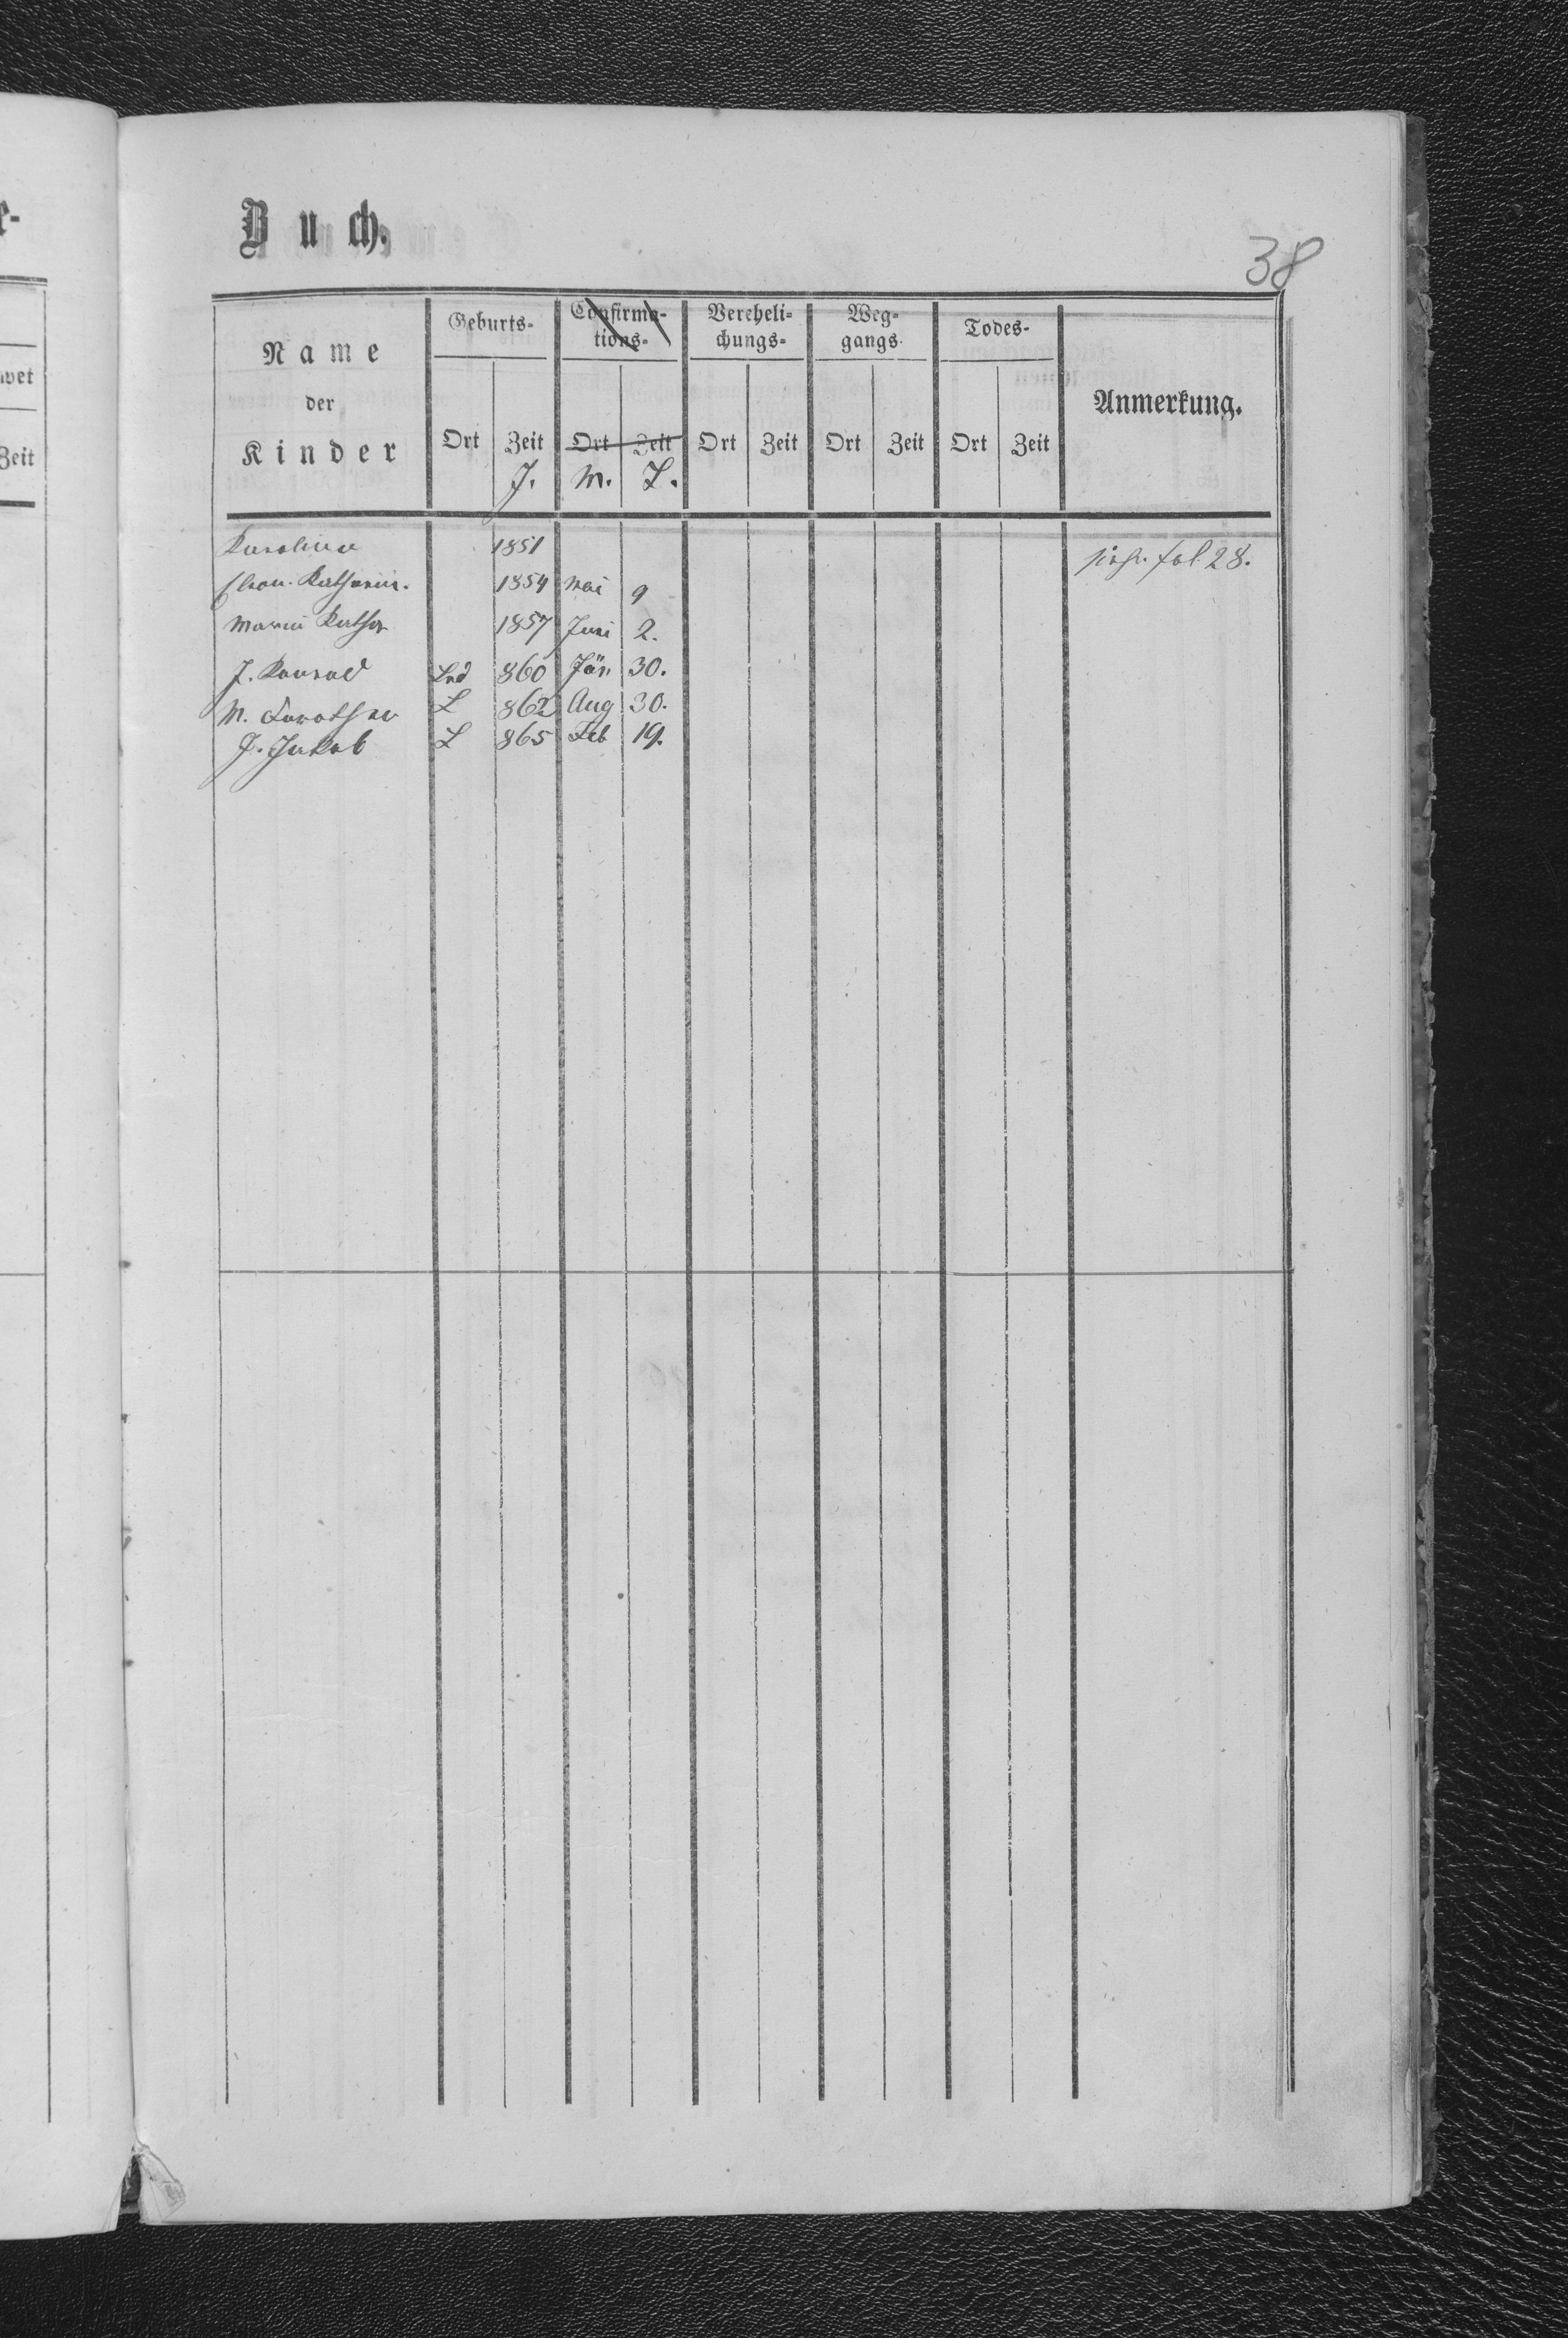 r-
wet
Zeit
Buch.
38
Name der Kinder
Geburts-
Confirma-
tions-
Vereheli-
chungs-
Weg-
gangs-
Todes-
Anmerkung.
Ort Zeit Ort Zeit Ort Zeit Ort Zeit Ort Zeit
J. M. T.
Karolina 1851 siehe fol. 28.
Katharin. 1854 Mai 9
Maria Kathar 1857 Juni 2.
J. Konrad Lnd 860 Jän 30.
M. Dorothea L 862 Aug 30.
J. Jakob L 865 Feb 19.